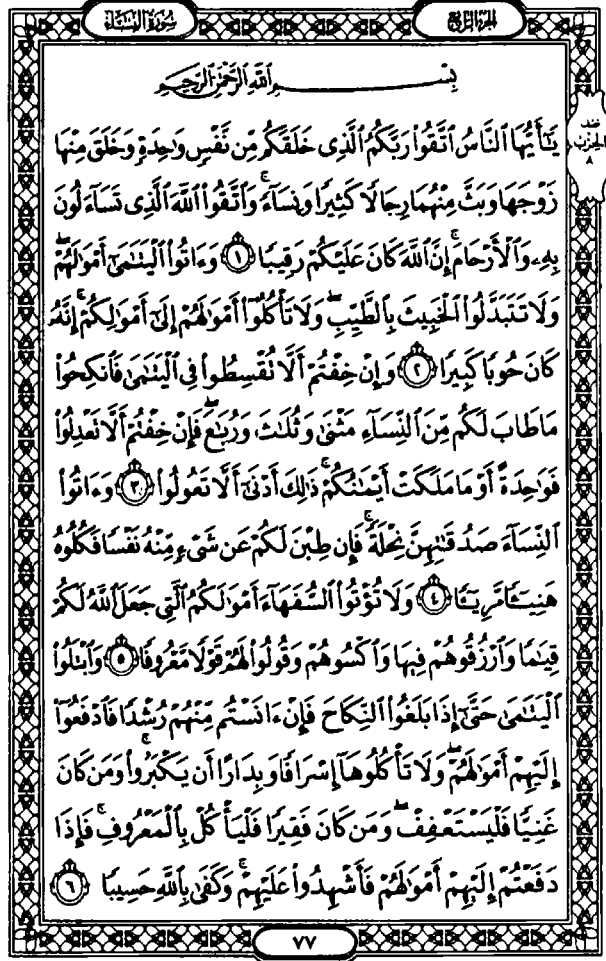 سُورَةُ النِّسَاءِ
الجُزْءُ الرَّابِعُ
نصف
الحِزْب
٨
بِسْمِ ٱللَّهِ ٱلرَّحْمَٰنِ ٱلرَّحِيمِ
يَٰٓأَيُّهَا ٱلنَّاسُ ٱتَّقُوا۟ رَبَّكُمُ ٱلَّذِى خَلَقَكُم مِّن نَّفْسٍ وَٰحِدَةٍ وَخَلَقَ مِنْهَا
زَوْجَهَا وَبَثَّ مِنْهُمَا رِجَالًا كَثِيرًا وَنِسَآءً ۚ وَٱتَّقُوا۟ ٱللَّهَ ٱلَّذِى تَسَآءَلُونَ
بِهِۦ وَٱلْأَرْحَامَ ۚ إِنَّ ٱللَّهَ كَانَ عَلَيْكُمْ رَقِيبًا ١ وَءَاتُوا۟ ٱلْيَتَٰمَىٰٓ أَمْوَٰلَهُمْ ۖ
وَلَا تَتَبَدَّلُوا۟ ٱلْخَبِيثَ بِٱلطَّيِّبِ ۖ وَلَا تَأْكُلُوٓا۟ أَمْوَٰلَهُمْ إِلَىٰٓ أَمْوَٰلِكُمْ ۚ إِنَّهُۥ
كَانَ حُوبًا كَبِيرًا ٢ وَإِنْ خِفْتُمْ أَلَّا تُقْسِطُوا۟ فِى ٱلْيَتَٰمَىٰ فَٱنكِحُوا۟
مَا طَابَ لَكُم مِّنَ ٱلنِّسَآءِ مَثْنَىٰ وَثُلَٰثَ وَرُبَٰعَ ۖ فَإِنْ خِفْتُمْ أَلَّا تَعْدِلُوا۟
فَوَٰحِدَةً أَوْ مَا مَلَكَتْ أَيْمَٰنُكُمْ ۚ ذَٰلِكَ أَدْنَىٰٓ أَلَّا تَعُولُوا۟ ٣ وَءَاتُوا۟
ٱلنِّسَآءَ صَدُقَٰتِهِنَّ نِحْلَةً ۚ فَإِن طِبْنَ لَكُمْ عَن شَىْءٍ مِّنْهُ نَفْسًا فَكُلُوهُ
هَنِيٓـًٔا مَّرِيٓـًٔا ٤ وَلَا تُؤْتُوا۟ ٱلسُّفَهَآءَ أَمْوَٰلَكُمُ ٱلَّتِى جَعَلَ ٱللَّهُ لَكُمْ
قِيَٰمًا وَٱرْزُقُوهُمْ فِيهَا وَٱكْسُوهُمْ وَقُولُوا۟ لَهُمْ قَوْلًا مَّعْرُوفًا ٥ وَٱبْتَلُوا۟
ٱلْيَتَٰمَىٰ حَتَّىٰٓ إِذَا بَلَغُوا۟ ٱلنِّكَاحَ فَإِنْ ءَانَسْتُم مِّنْهُمْ رُشْدًا فَٱدْفَعُوٓا۟
إِلَيْهِمْ أَمْوَٰلَهُمْ ۖ وَلَا تَأْكُلُوهَآ إِسْرَافًا وَبِدَارًا أَن يَكْبَرُوا۟ ۚ وَمَن كَانَ
غَنِيًّا فَلْيَسْتَعْفِفْ ۖ وَمَن كَانَ فَقِيرًا فَلْيَأْكُلْ بِٱلْمَعْرُوفِ ۚ فَإِذَا
دَفَعْتُمْ إِلَيْهِمْ أَمْوَٰلَهُمْ فَأَشْهِدُوا۟ عَلَيْهِمْ ۚ وَكَفَىٰ بِٱللَّهِ حَسِيبًا ٦
٧٧